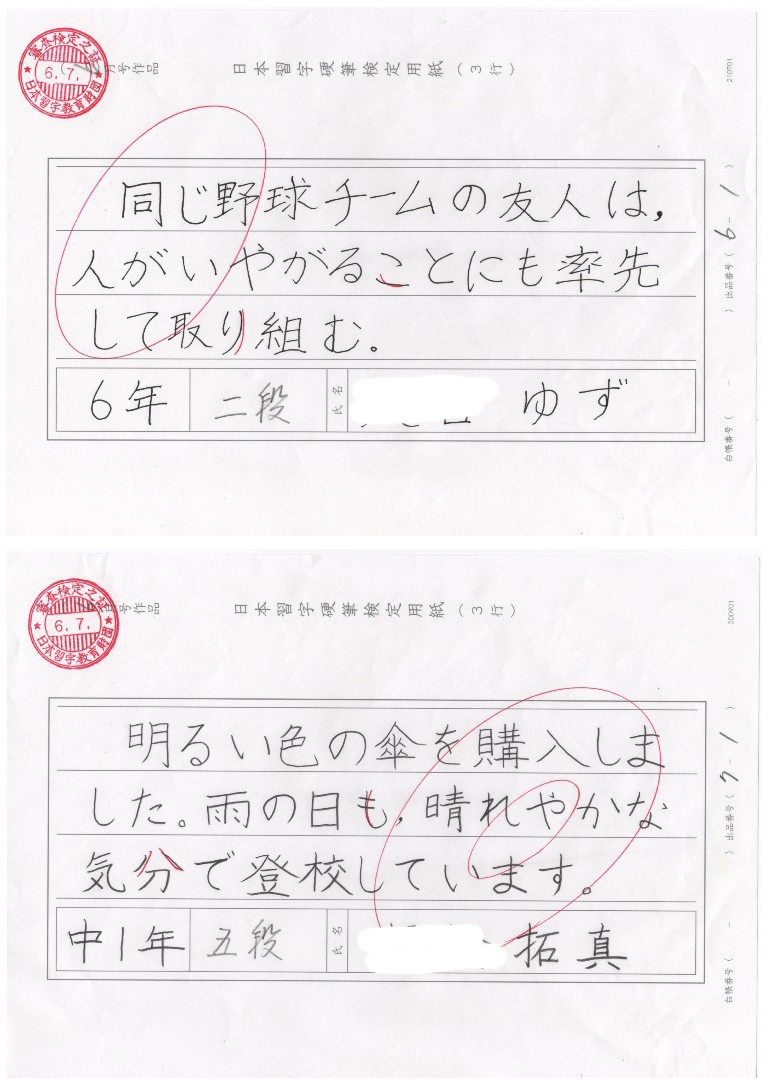 審査検定之証
6.7.
日本習字教育財団
月号作品
日本習字硬筆検定用紙（3行）
210701
同じ野球チームの友人は，
人がいやがることにも率先
して取り組む。
6年
二段
氏名
ゆず
出品番号（6-1）
台帳番号（　-　）
審査検定之証
6.7.
日本習字教育財団
月号作品
日本習字硬筆検定用紙（3行）
200901
明るい色の傘を購入しま
した。雨の日も，晴れやかな
気分で登校しています。
中1年
五段
氏名
拓真
出品番号（7-1）
台帳番号（　-　）